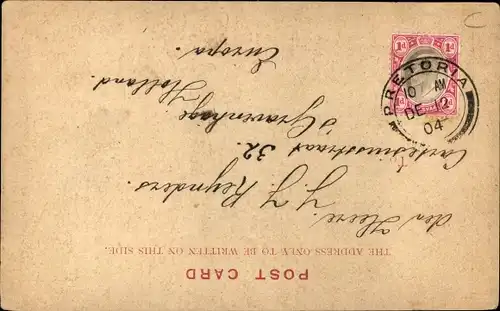 POST CARD
THE ADDRESS ONLY TO BE WRITTEN ON THIS SIDE.
den Heere.
J. J. Reynders.
Cartesiusstraat 32.
s Gravenhage
Holland.
Europa.
1d 1d
PRETORIA
10 AM
DE 12
04